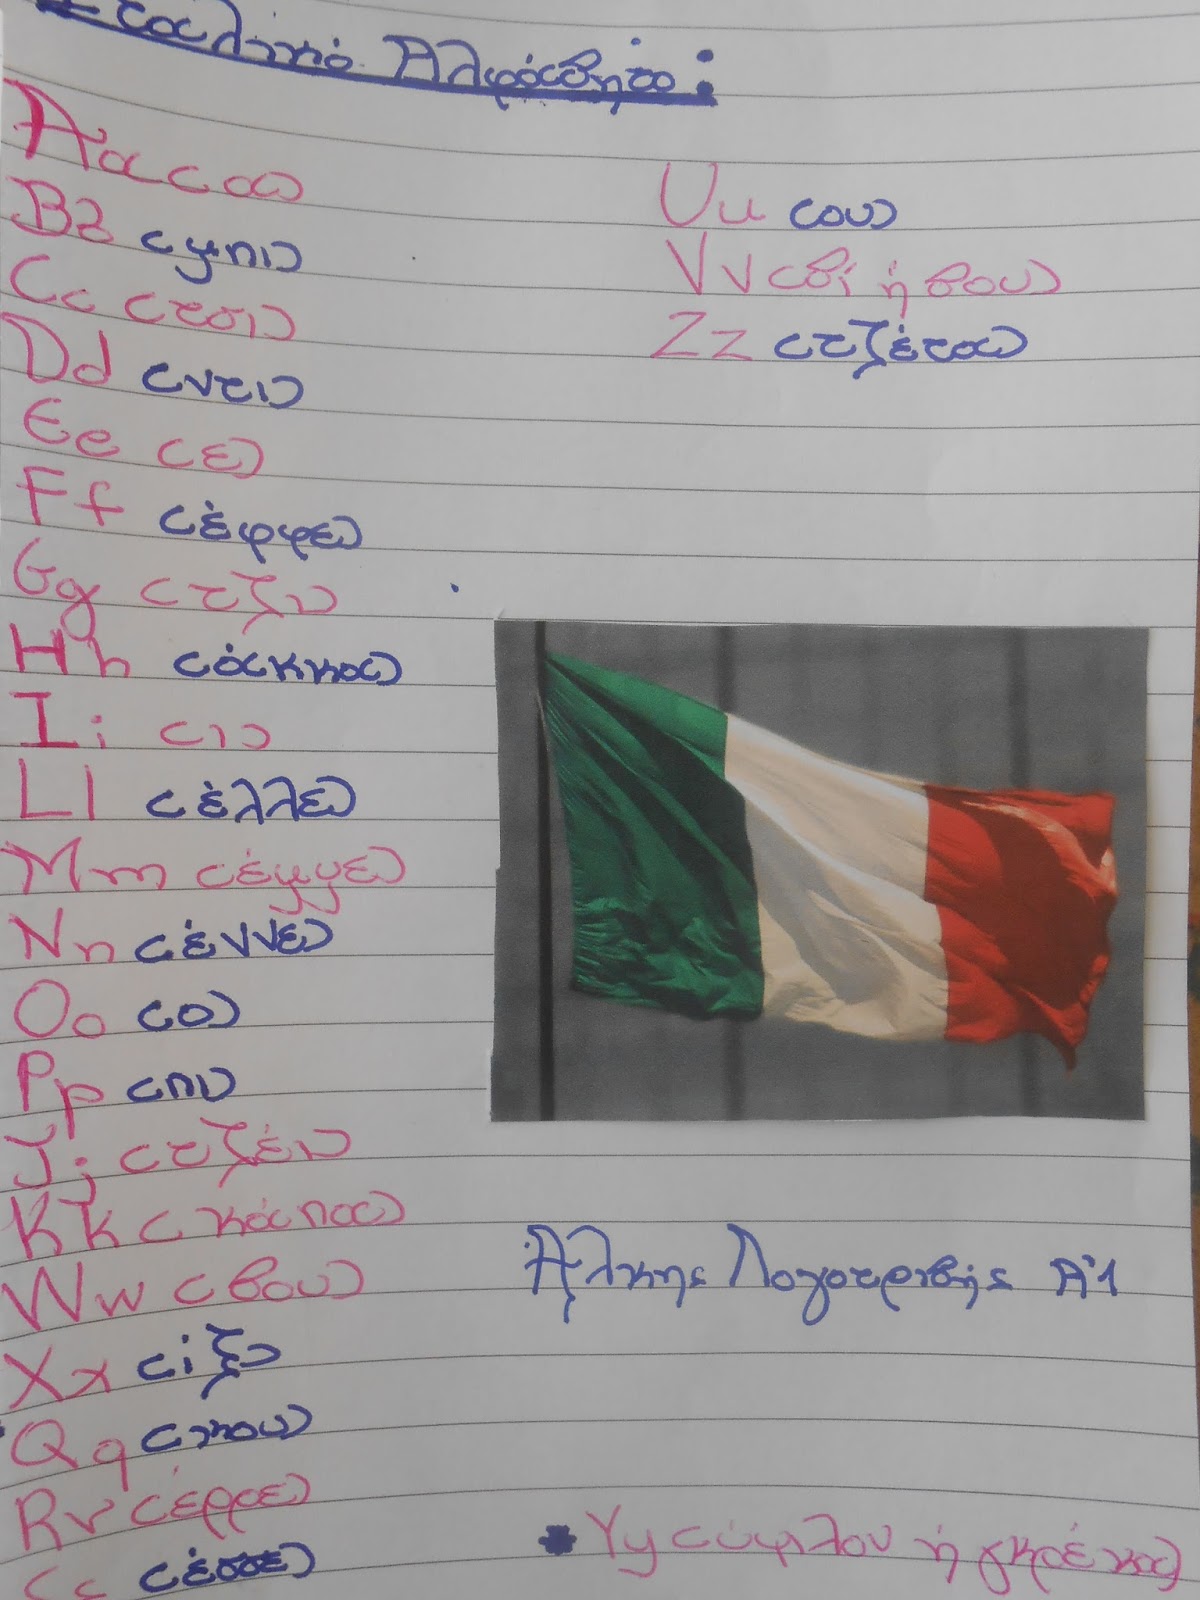 Ιταλικό Αλφάβητο:
Aa (α)
Bb (μπι)
Cc (τσι)
Dd (ντι)
Ee (ε)
Ff (έφφε)
Gg (τζι)
Hh (άκκα)
Ii (ι)
Ll (έλλε)
Mm (έμμε)
Nn (έννε)
Oo (ο)
Pp (πι)
Jj (τζέι)
Kk (κάπα)
Ww (βου)
Xx (ίξ)
Qq (κου)
Rr (έρρε)
Ss (έσσε)
Uu (ου)
Vv (βί ή βου)
Zz (τζέτα)
Άλκης Λογοτριβής Α'1
Yy (ύψιλον ή γκρέκα)